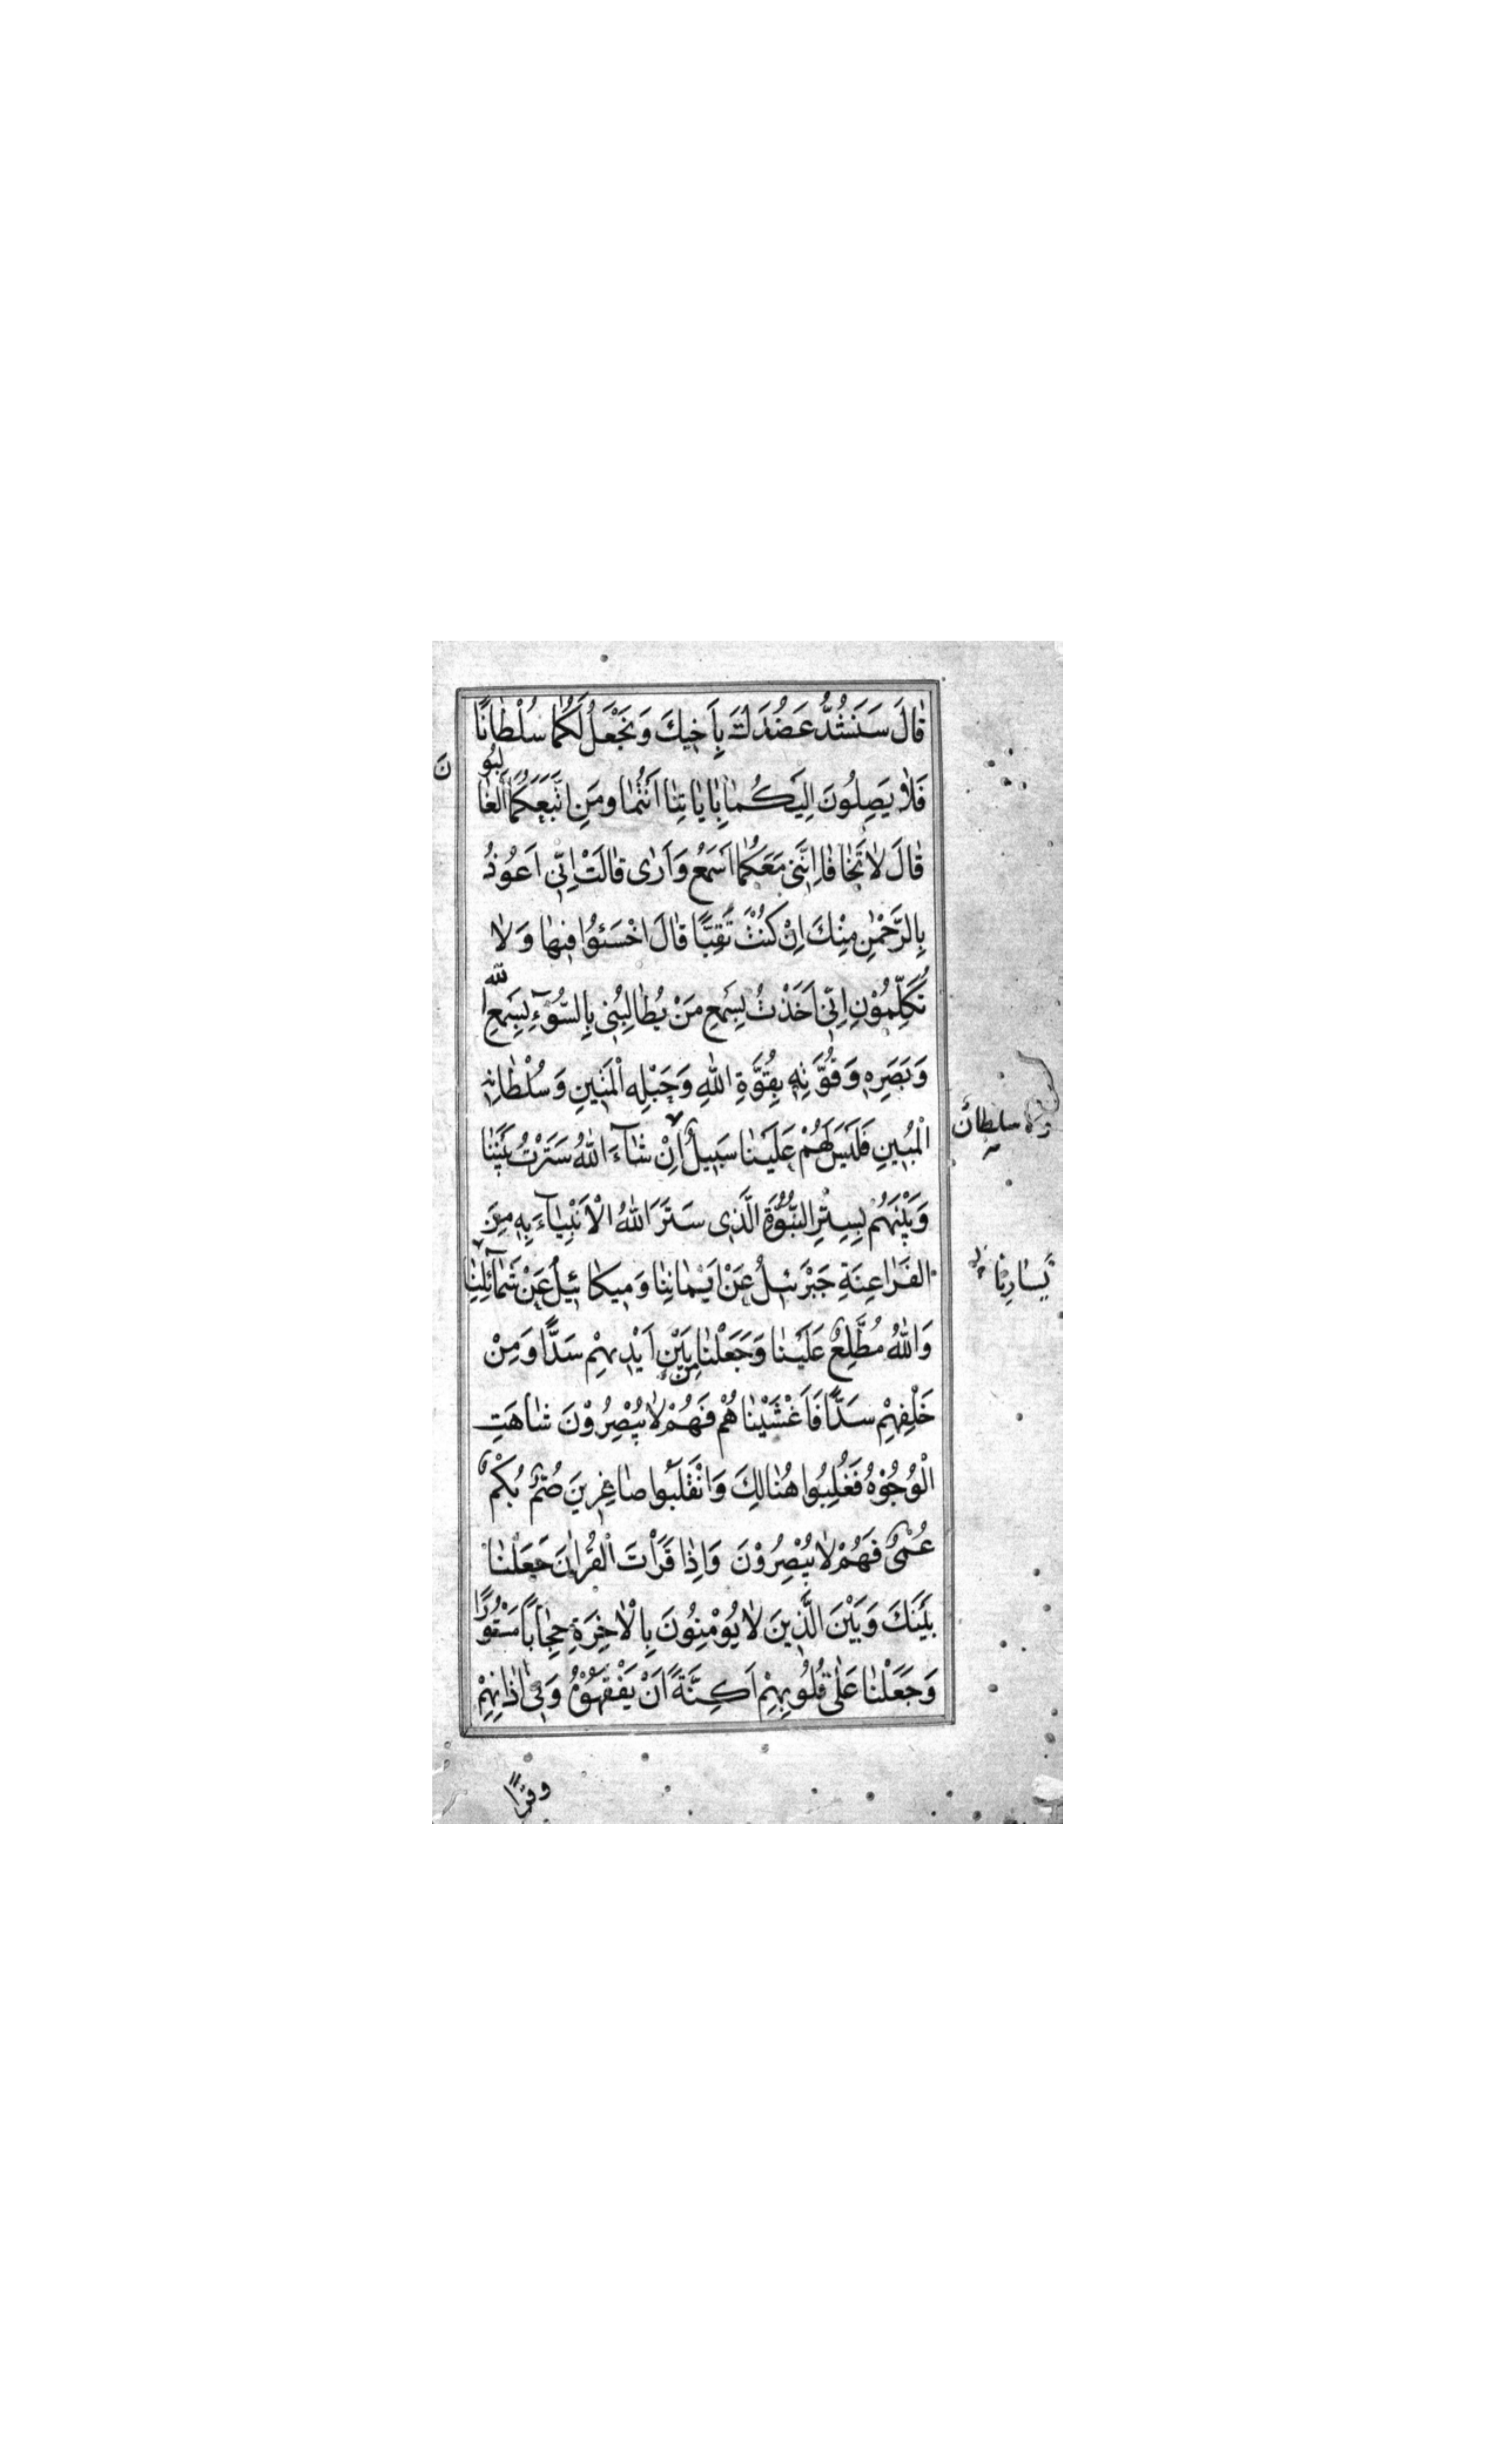 قٰالَ سَنَشُدُّ عَضُدَكَ بِاَخيكَ وَنَجْعَلُ لَكُمٰا سُلْطٰانًا
فَلاٰ يَصِلُونَ اِلَيكُمٰا بِاٰيٰاتِنٰا اَنْتُمٰا ومَنِ اتَّبَعَكُمَا الْغٰا
لِبُو
نَ
قٰالَ لاٰ تَخٰافٰا اِنَّنى مَعَكُمٰا اَسْمَعُ وَاَرٰى قٰالَتْ اِنّى اَعُوذُ
بِالرَّحْمٰنِ مِنْكَ اِنْ كُنْتَ تَقِيًّا قٰالَ اخْسَئوُا فيهٰا وَلاٰ
تُكَلِّمُوْنِ اِنّى اَخَذْتُ بِسَمْعِ مَنْ يُطٰالِبُنى بِالسُّوۤءِ بِسَمْعِ ا
للّٰه
وَبَصَرِه وَقُوَّتِه بِقُوَّةِ اللّٰهِ وَحَبْلِهِ الْمَتينِ وَسُلْطٰانِهِ
الْمُبينِ فَلَيْسَ لَهُمْ عَلَيْنٰا سَبيلٌ اِنْ شٰاۤءَ اللّٰهُ سَتَرْتُ بَيْنَنٰا
سلطانٌ
وَبَيْنَهُمْ بِسِتْرِ النُّبُوَّةِ الَّذى سَتَرَ اللّٰهُ الْاَنْبِيٰاۤءَ بِه مِنَ
الفَرٰاعِنَةِ جَبْرَئيلُ عَنْ اَيْمٰانِنٰا وَميكٰائيلُ عَنْ شَمٰاۤئِلِنٰا
يَسٰارِنٰا
وَاللّٰهُ مُطَّلِعٌ عَلَيْنٰا وَجَعَلْنٰا مِنْ بَيْنِ اَيْديهِمْ سَدًّا وَمِنْ
خَلْفِهِمْ سَدًّا فَاَغْشَيْنٰاهُمْ فَهُمْ لاٰ يُبْصِرُوْنَ شٰاهَتِ
الْوُجُوْهُ فَغُلِبُوا هُنٰالِكَ وَانْقَلَبُوا صٰاغِرينَ صُمٌّ بُكْمٌ
عُمْىٌ فَهُمْ لاٰ يُبْصِرُوْنَ وَاِذٰا قَرَاْتَ الْقُرْاٰنَ جَعَلْنٰا
بَيْنَكَ وَبَيْنَ الَّذينَ لاٰ يُوْمِنُونَ بِالْاٰخِرَةِ حِجٰاباً مَسْتُوْرًا
وَجَعَلْنٰا عَلٰى قُلُوْبِهِمْ اَكِنَّةً اَنْ يَفْقَهُوْهُ وَفى اٰذٰانِهِمْ
وقرًا